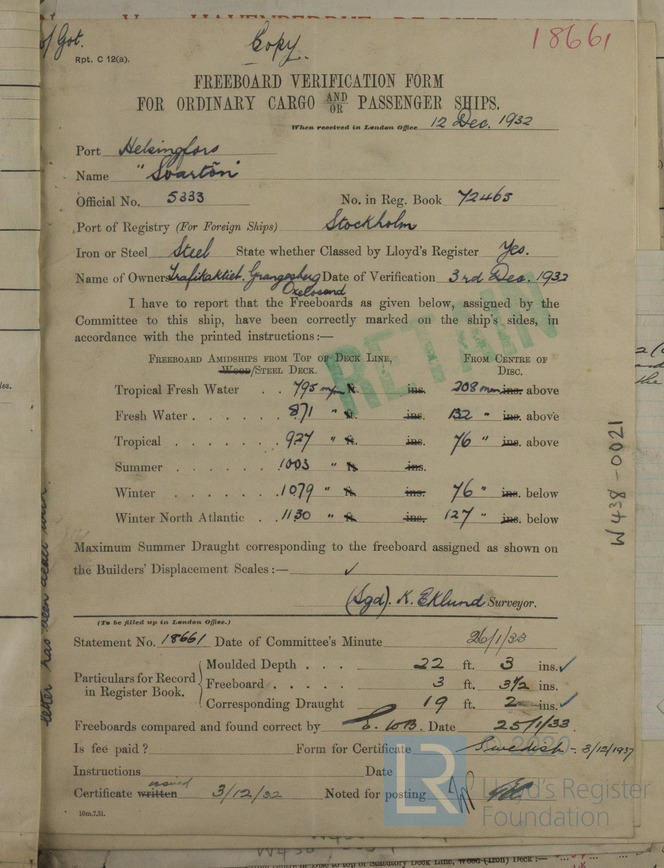 of Got.
Copy.
18661
Rpt. C 12(a).
FREEBOARD VERIFICATION FORM
FOR ORDINARY CARGO AND/OR PASSENGER SHIPS.
When received in London Office 12 Dec. 1932
Port Helsingfors
Name "Svartön"
Official No. 5333 No. in Reg. Book 72465
Port of Registry (For Foreign Ships) Stockholm
Iron or Steel Steel State whether Classed by Lloyd's Register Yes.
Name of Owners Trafikaktieb. Grangesberg Oxelosund Date of Verification 3rd Dec. 1932
I have to report that the Freeboards as given below, assigned by the
Committee to this ship, have been correctly marked on the ship's sides, in
accordance with the printed instructions:—
RETAIN
FREEBOARD AMIDSHIPS FROM TOP OF DECK LINE, FROM CENTRE OF
WOOD/STEEL DECK. DISC.
Tropical Fresh Water . . 795 mm ft. ins. 208 mm ins. above
Fresh Water . . . . . 871 " ft. ins. 132 " ins. above
Tropical . . . . . . . 927 " ft. ins. 76 " ins. above
Summer . . . . . . 1003 " ft. ins.
Winter . . . . . . . 1079 " ft. ins. 76 " ins. below
Winter North Atlantic . . 1130 " ft. ins. 127 " ins. below
W438-0021
Maximum Summer Draught corresponding to the freeboard assigned as shown on
the Builders' Displacement Scales:— ✓
(Sgd). K. Eklund Surveyor.
(To be filled up in London Office.)
Statement No. 18661 Date of Committee's Minute 26/1/33
Particulars for Record in Register Book.
Moulded Depth . . . 22 ft. 3 ins. ✓
Freeboard . . . . . 3 ft. 3½ ins.
Corresponding Draught 19 ft. 2 ins. ✓
Freeboards compared and found correct by Date 25/1/33.
Is fee paid? Form for Certificate Swedish - 3/12/1937
Instructions Date
Certificate written issued 3/12/32 Noted for posting
10m.7.31.
letter has been dealt with
© 2020
LR
Lloyd's Register
Foundation